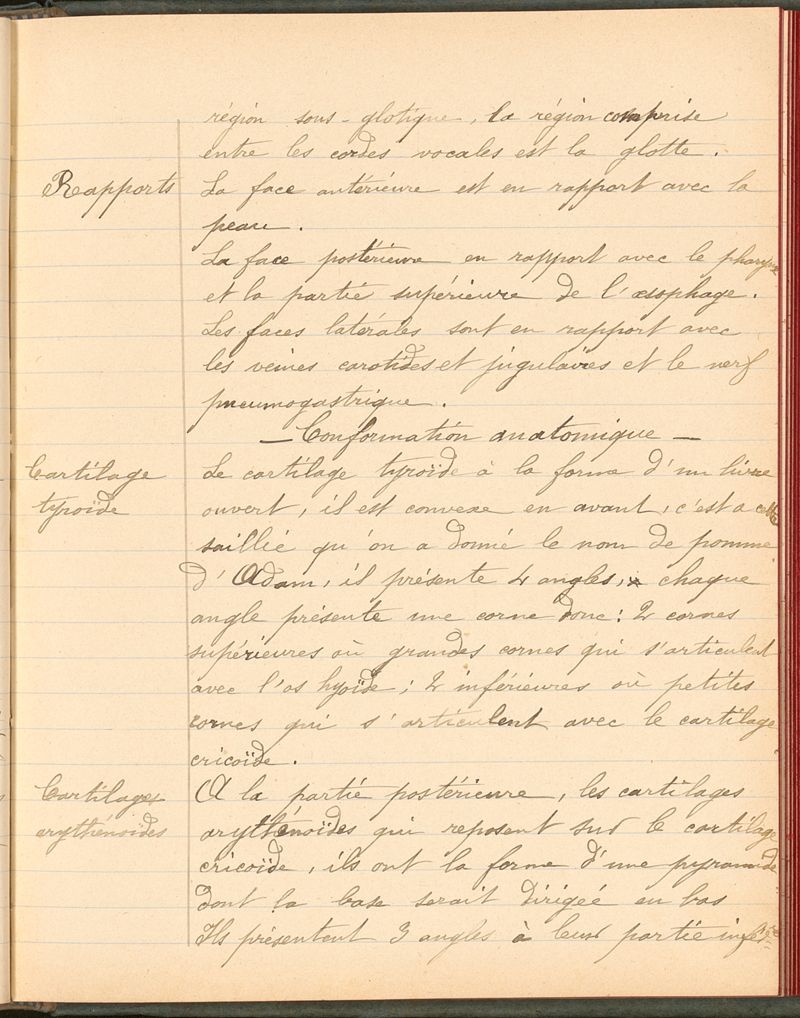 région sous-glotique, la région comprise
entre les cordes vocales est la glotte.
Rapports La face antérieure est en rapport avec la
peau.
La face postérieure en rapport avec le pharynx
et la partie supérieure de l'œsophage.
Les faces latérales sont en rapport avec
les veines carotides et jugulaires et le nerf
pneumogastrique.
— Conformation anatomique —
Cartilage Le cartilage tyroïde à la forme d'un livre
tyroïde ouvert, il est convexe en avant, c'est a cette
saillie qu'on a donné le nom de pomme
d'Adam, il présente 4 angles, chaque
angle présente une corne donc: 2 cornes
supérieures où grandes cornes qui s'articulent
avec l'os hyoïde; 2 inférieures où petites
cornes qui s'articulent avec le cartilage
cricoïde.
Cartilages A la partie postérieure, les cartilages
arythénoïdes arythénoïdes qui reposent sur le cartilage
cricoïde, ils ont la forme d'une pyramide
dont la base serait dirigée en bas
Ils présentent 3 angles à leur partie